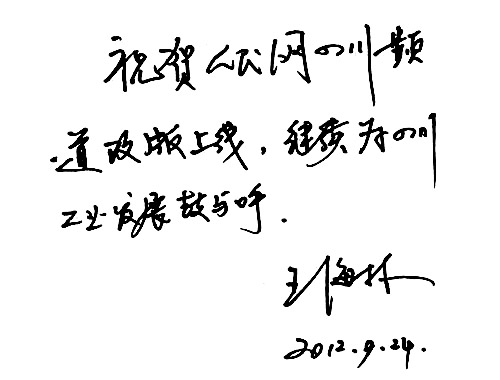 祝贺人民网四川频
道改版上线，继续为四川
工业发展鼓与呼．
王海林
2012.9.24.